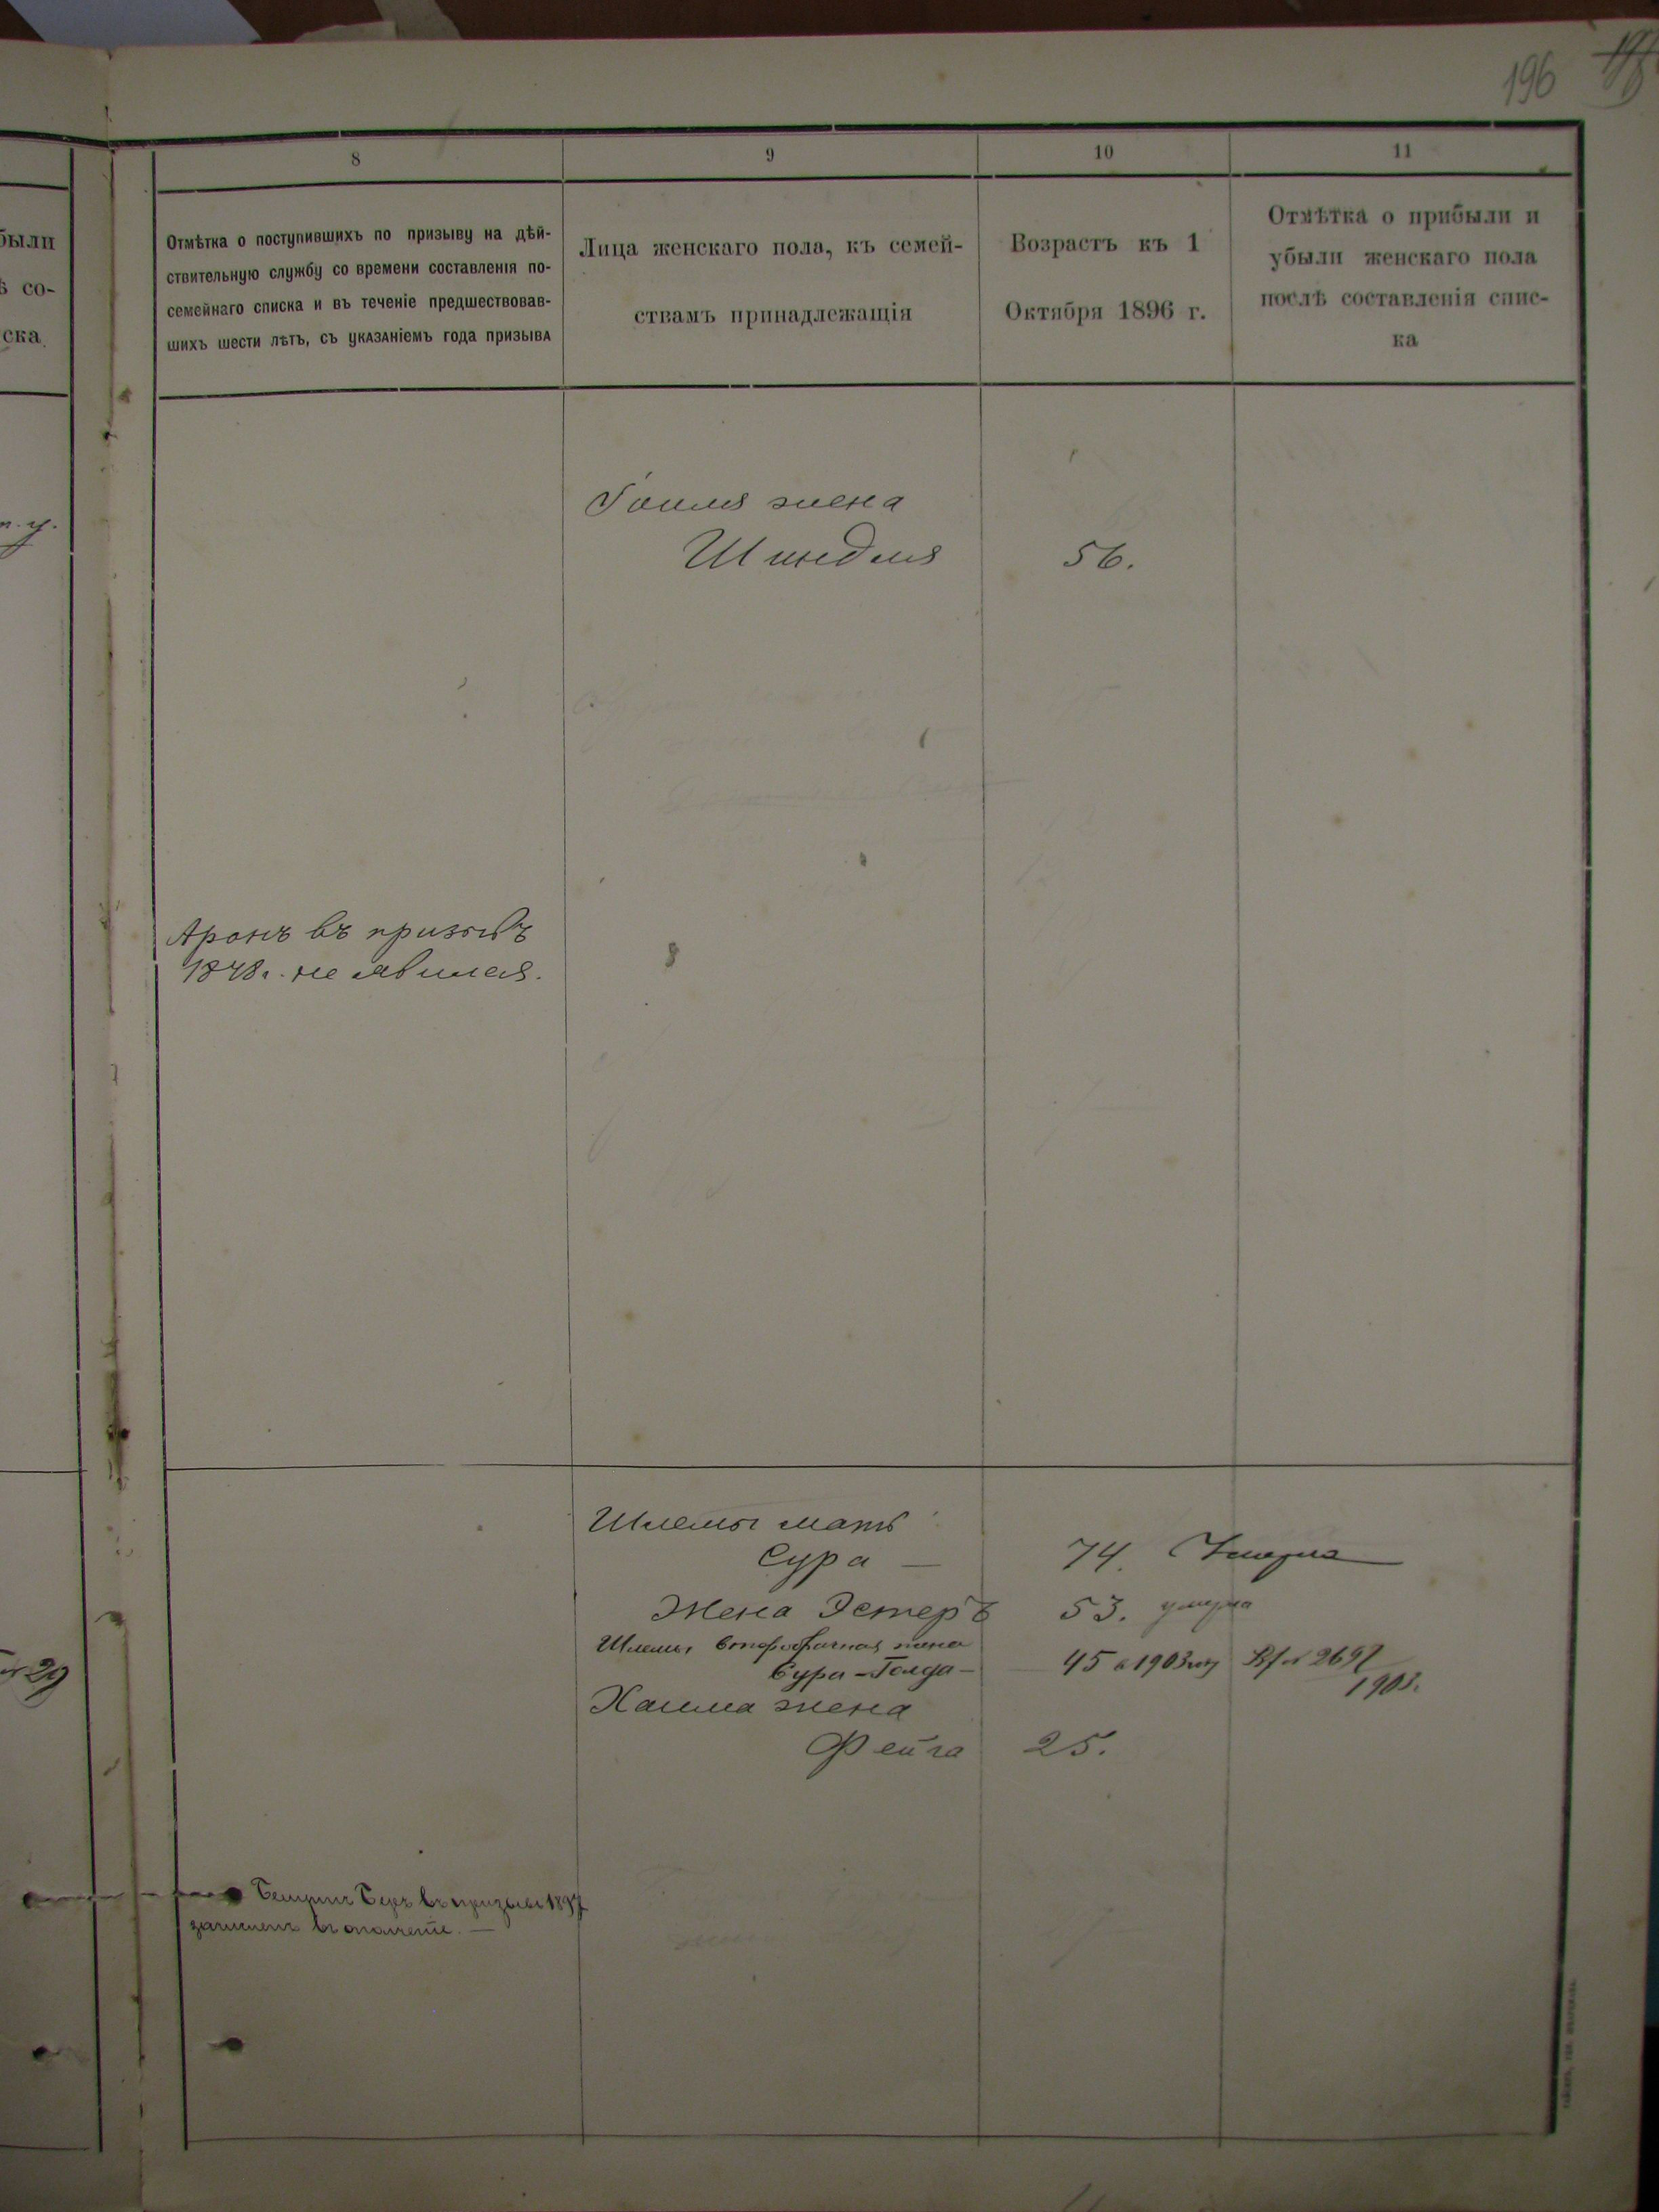 196
8
9
10
11
были
ѣ со-
ска
Отмѣтка о поступившихъ по призыву на дѣй-
ствительную службу со времени составленія по-
семейнаго списка и въ теченіе предшествовав-
шихъ шести лѣтъ, съ указаніемъ года призыва
Лица женскаго пола, къ семей-
ствамъ принадлежащія
Возрастъ къ 1
Октября 1896 г.
Отмѣтка о прибыли и
убыли женскаго пола
послѣ составленія спис-
ка
жена
Шиндля 56.
Аронъ въ призывъ
1898 г. не явился.
Шлемы мать
Сура — 74. Умерла
Жена Эстеръ 53. умерла
Шлемы второбрачная жена
Сура-Голда - 45 в 1903 году № 2697
1903.
Хаима жена
Фейга 25.
№ 29
Беръ въ призывъ 1897
зачисленъ въ ополченіе. —